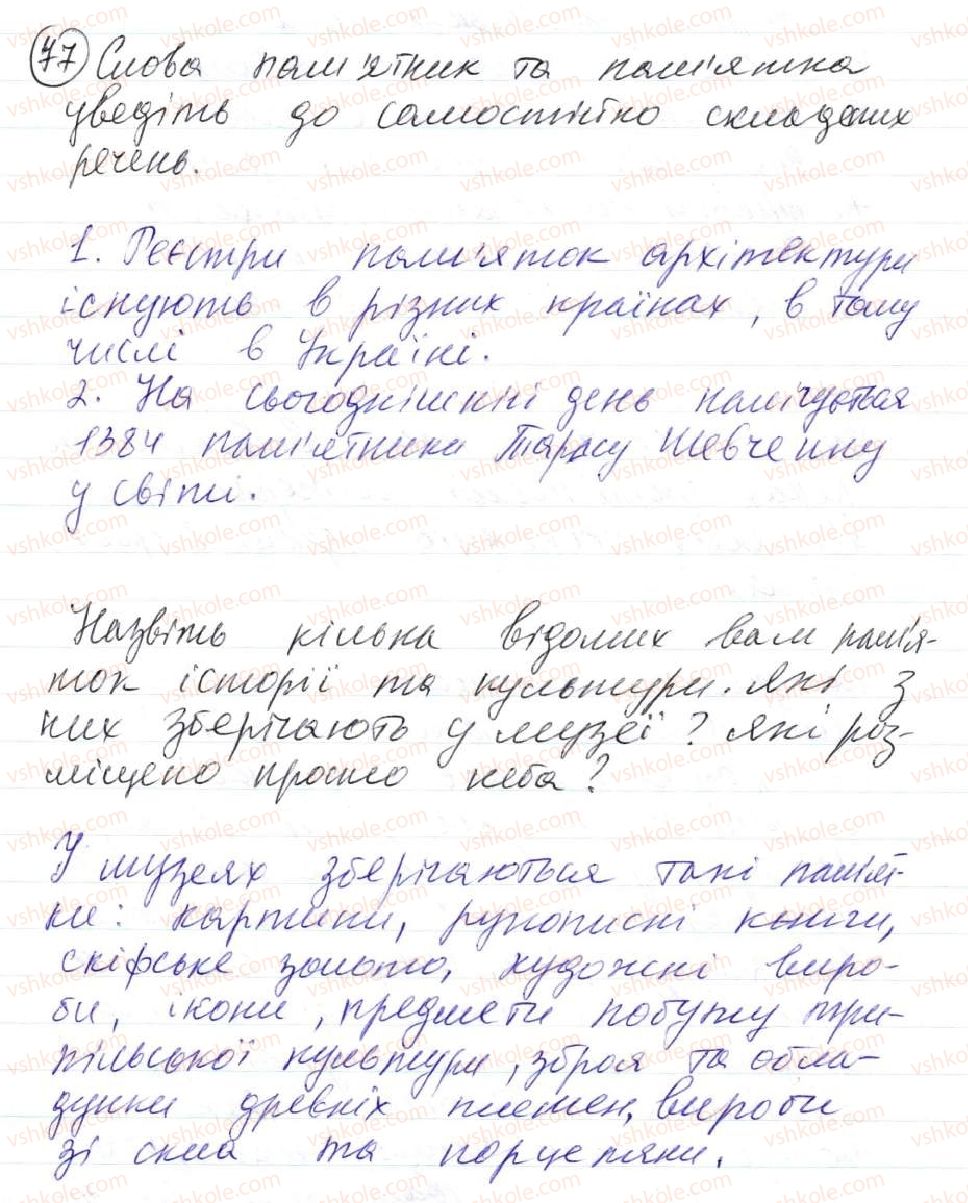 77 Слова пам'ятник та пам'ятка
уведіть до самостійно складених
речень.
1. Реєстри пам'яток архітектури
існують в різних країнах, в тому
числі в Україні.
2. На сьогоднішній день налічується
1384 пам'ятники Тарасу Шевченку
у світі.
Назвіть кілька відомих вам пам'я-
ток історії та культури. Які з
них зберігають у музеї? Які роз-
міщено просто неба?
У музеях зберігаються такі пам'ят-
ки: картини, рукописні книги,
скіфське золото, художні виро-
би, ікони, предмети побуту три-
пільської культури, зброя та обла-
дунки древніх племен, вироби
зі скла та порцеляни.